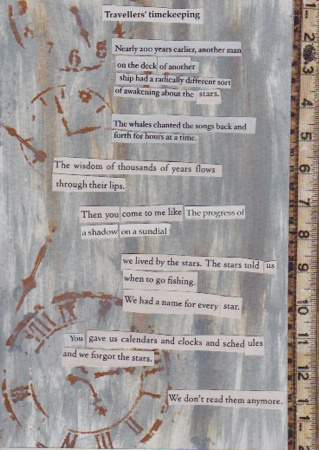 Travellers' timekeeping
Nearly 200 years earlier, another man
on the deck of another
ship had a radically different sort
of awakening about the stars.
The whales chanted the songs back and
forth for hours at a time.
The wisdom of thousands of years flows
through their lips.
Then you come to me like The progress of
a shadow on a sundial
we lived by the stars. The stars told us
when to go fishing.
We had a name for every star.
You gave us calendars and clocks and sched ules
and we forgot the stars.
We don't read them anymore.
1
2
3
4
5
6
7
8
9
10
11
12
1